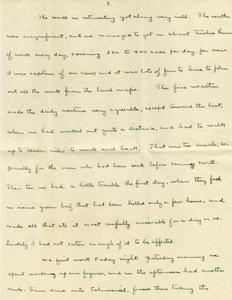 2.
The work is interesting and along very well. The weather
was magnificent, and we managed to get in about twelve hours
of work every day, covering 300 to 400 acres per day per man
I was captain of our crew and it was lots of fun to have to plan
out all the work from the land maps. The fine weather
made the daily routine very agreeable, except toward the last,
when we had worked out quite a distance, and had to walk
up to seven miles to work and back. That was too much, es-
pecially for the men who had been sick before coming north.
Then too we had a little trouble the first day, when they fed
us some green beef that had been killed only a few hours, and
made all that ate it most awfully miserable for a day or so.
Luckily I had not eaten enough of it to be affected.
We quit work Friday night. Yesterday morning we
spent working up our figures, and in the afternoon had another
mile drive into Centennial, from there taking the